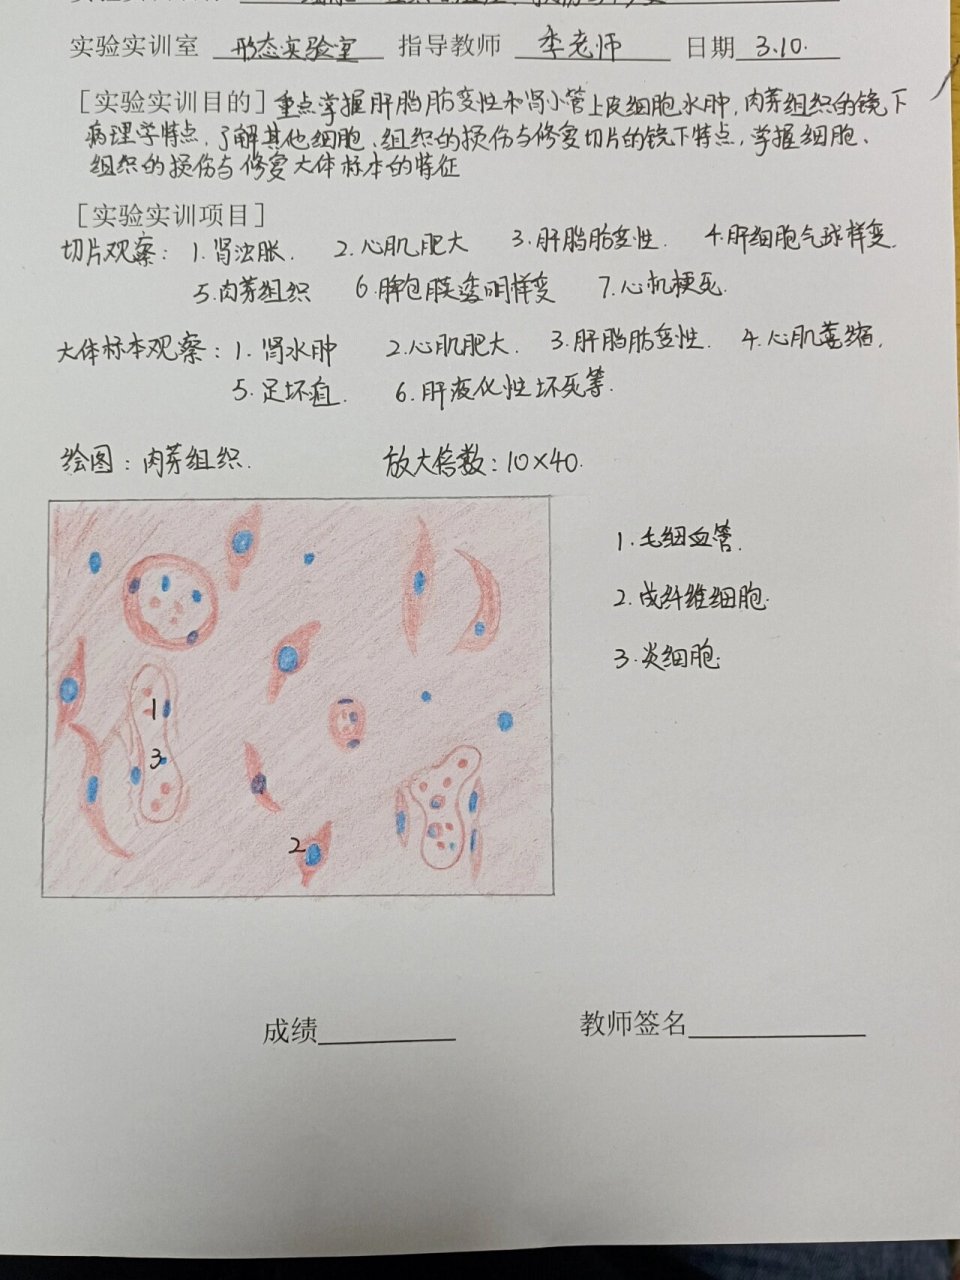 实验实训室 形态实验室 指导教师 李老师 日期 3.10.
[实验实训目的] 重点掌握肝脂肪变性和肾小管上皮细胞水肿, 肉芽组织的镜下
病理学特点, 了解其他细胞、组织的损伤与修复切片的镜下特点, 掌握细胞、
组织的损伤与修复大体标本的特征
[实验实训项目]
切片观察: 1. 肾浊胀. 2. 心肌肥大 3. 肝脂肪变性. 4. 肝细胞气球样变.
5. 肉芽组织 6. 脾包膜透明样变 7. 心肌梗死.
大体标本观察: 1. 肾水肿 2. 心肌肥大. 3. 肝脂肪变性. 4. 心肌萎缩.
5. 足坏疽. 6. 肝液化性坏死等.
绘图: 肉芽组织. 放大倍数: 10×40.
1. 毛细血管.
2. 成纤维细胞.
3. 炎细胞.
1
3
2
成绩
教师签名